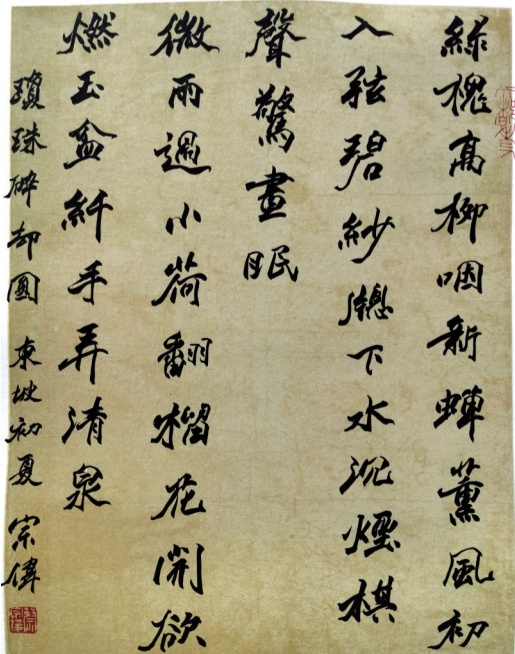 綠槐高柳咽新蟬薰風初
入弦碧紗牕下水沉煙棋
聲驚晝眠
微雨過小荷翻榴花開欲
燃玉盆纤手弄清泉
瓊珠碎却圓 東坡初夏 宗偉